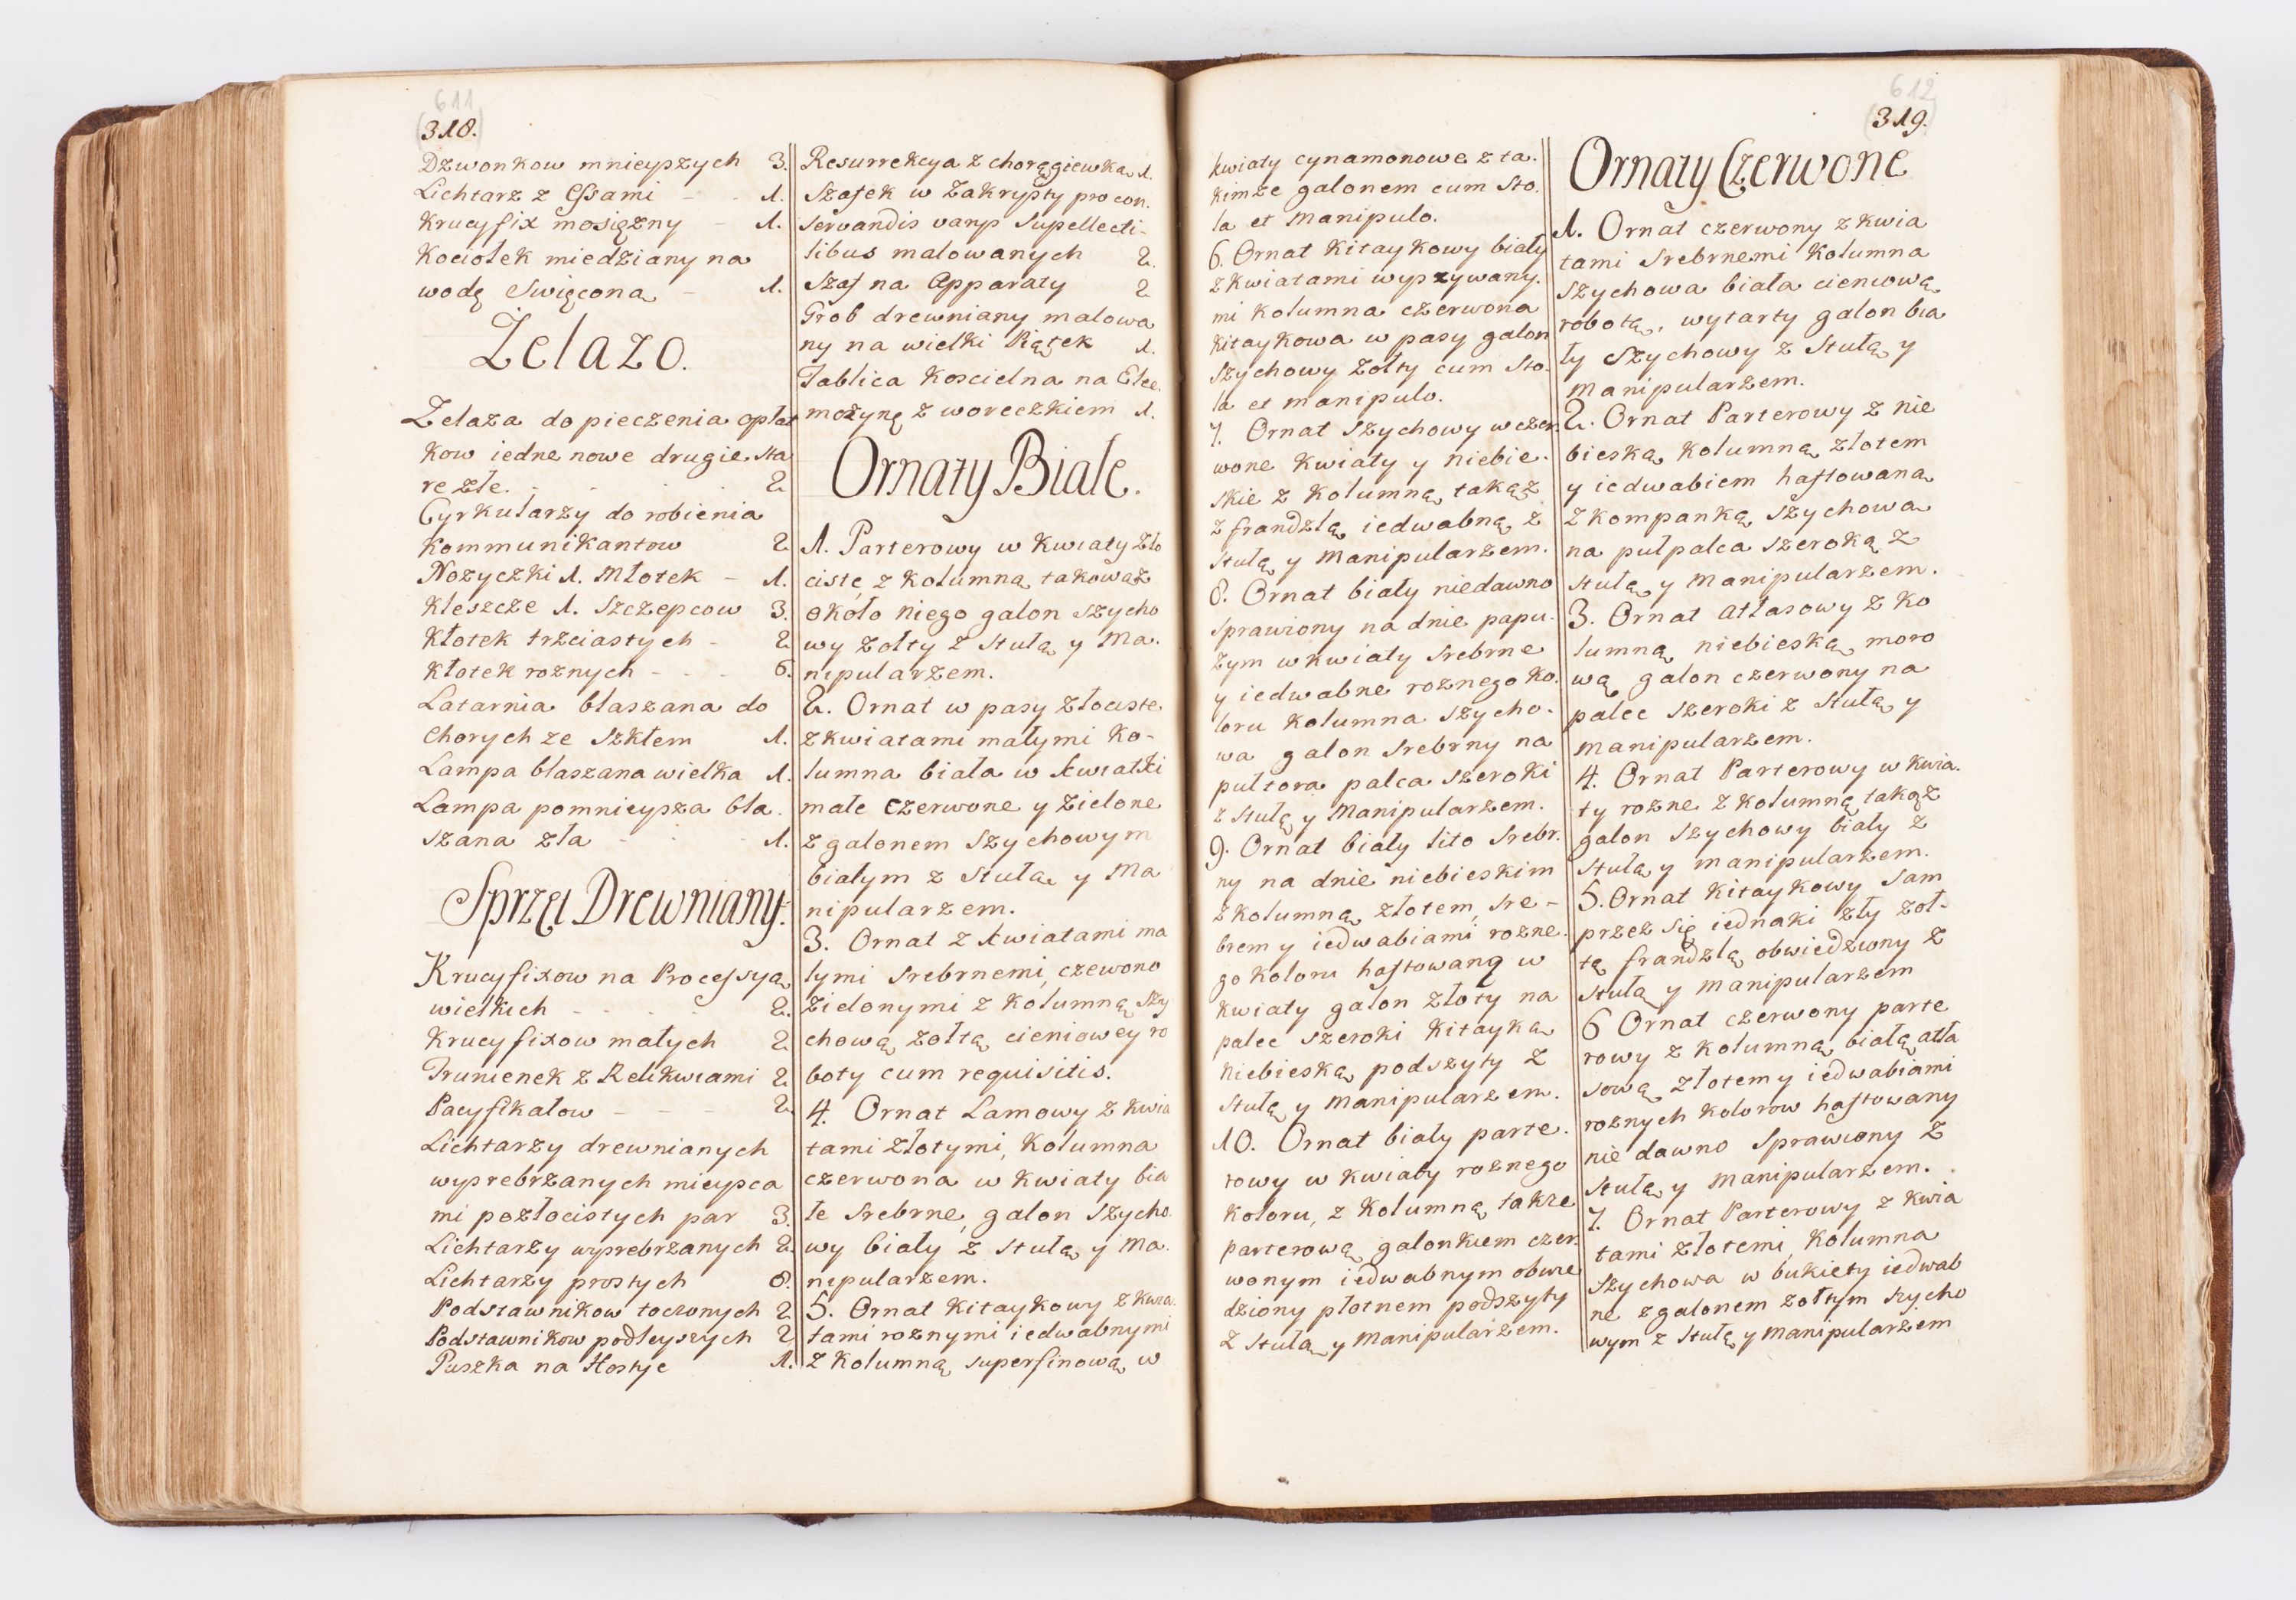 611
(318.)
Dzwonkow mnieyszych 3.
Lichtarz z Essami - - 1.
Krucyfix mosiężny - 1.
Kociołek miedziany na
wodę Swięcona - 1.
Żelazo.
Zelaza do pieczenia opłat
kow iedne nowe drugie sta
re złe. - - - 2
Cyrkularzy do robienia
Kommunikantow 2
Nozyczki 1. Młotek - 1.
Kleszcze 1. Szczepcow 3.
Kłotek trzciastych - 2
Kłotek roznych - - - 6.
Latarnia blaszana do
Chorych ze Szkłem 1.
Lampa blaszana wielka 1.
Lampa pomnieysza bla.
szana zła - - - 1.
Sprzęt Drewniany.
Krucyfixow na Processyą
wielkich - - - 2.
Krucyfixow małych 2
Trunienek z Relikwiami 2
Pacyfikałow - - - 2.
Lichtarzy drewnianych
wysrebrzanych mieysca
mi pozłocistych par 3.
Lichtarzy wysrebrzanych 2.
Lichtarzy prostych 8.
Podstawnikow toczonych 2
Podstawnikow podleyszych 2
Puszka na Hostye 1.
Resurrekcya z chorągiewką 1.
Szafek w Zakrysty pro con.
servandis varys supellecti-
libus malowanych 2.
Szaf na Apparaty 2
Grob drewniany malowa
ny na wielki Piątek 1.
Tablica Koscielna na Elee.
możynę z woreczkiem 1.
Ornaty Białe.
1. Parterowy w Kwiaty zło
ciste z Kolumną takowąż
około niego galon szycho
wy żołty z stułą y Ma.
nipularzem.
2. Ornat w pasy złociste
z kwiatami małymi Ko-
lumna biała w kwiatki
małe czerwone y zielone
z galonem szychowym
białym z stułą y Ma
nipularzem.
3. Ornat z kwiatami ma
łymi srebrnemi, czewono
zielonymi z kolumną szy
chową żołtą cieniowey ro
boty cum requisitis.
4. Ornat Lamowy z kwia
tami złotymi, Kolumna
czerwona w Kwiaty bia
łe srebrne, galon szycho.
wy biały z stułą y Ma.
nipularzem.
5. Ornat Kitaykowy z kwia.
tami roznymi iedwabnymi
z Kolumną superfinową w
612
(319.)
kwiaty cynamonowe z ta.
kimże galonem cum sto.
la et manipulo.
6. Ornat Kitaykowy biały
z kwiatami wyszywany.
mi kolumna czerwona
kitaykowa w pasy galon
szychowy żołty cum sto.
la et manipulo.
7. Ornat szychowy w czer.
wone kwiaty y niebie.
skie z kolumną takąż
z frandzlą iedwabną z
stułą y Manipularzem.
8. Ornat biały niedawno
sprawiony na dnie papu.
żym w kwiaty srebrne
y iedwabne roznego ko.
loru kolumna szycho.
wa galon srebrny na
pułtora palca szeroki
z stułą y Manipularzem.
9. Ornat biały lito srebr.
ny na dnie niebieskim
z kolumną złotem, sre-
brem y iedwabiami rozne.
go koloru haftowaną w
kwiaty galon złoty na
palec szeroki kitayką
niebieską podszyty z
stułą y Manipularzem.
10. Ornat biały parte.
rowy w kwiaty roznego
koloru, z kolumną takze
parterową galonkiem czer.
wonym iedwabnym obwie
dziony płotnem podszyty
z stułą y Manipularzem.
Ornaty Czerwone
1. Ornat czerwony z kwia
tami srebrnemi kolumna
szychowa biała cieniową
robotą, wytarty galon bia
ły szychowy z stułą y
manipularzem.
2. Ornat Parterowy z nie
bieską kolumną złotem
y iedwabiem haftowaną
z kompanką szychowa
na pułpalca szeroką z
stułą y Manipularzem.
3. Ornat atłasowy z ko
lumną niebieską moro
wą galon czerwony na
palec szeroki z stułą y
manipularzem.
4. Ornat Parterowy w kwia.
ty rozne z kolumną takąż
galon szychowy biały z
stułą y manipularzem.
5. Ornat kitaykowy sam
przez się iednaki zły żoł-
tą frandzlą obwiedziony z
stułą y manipularzem
6 Ornat czerwony parte
rowy z kolumną białą atła
sową złotem y iedwabiami
roznych kolorow haftowany
nie dawno sprawiony z
stułą y manipularzem.
7. Ornat Parterowy z kwia
tami złotemi, kolumna
szychowa w bukiety iedwab
ne z galonem żołtym szycho
wym z stułą y manipularzem